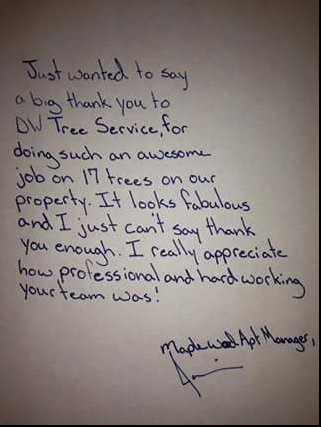 Just wanted to say
a big thank you to
DW Tree Service, for
doing such an awesome
job on 17 trees on our
property. It looks fabulous
and I just can't say thank
you enough. I really appreciate
how professional and hard working
your team was!
Maplewood Apt Manager,